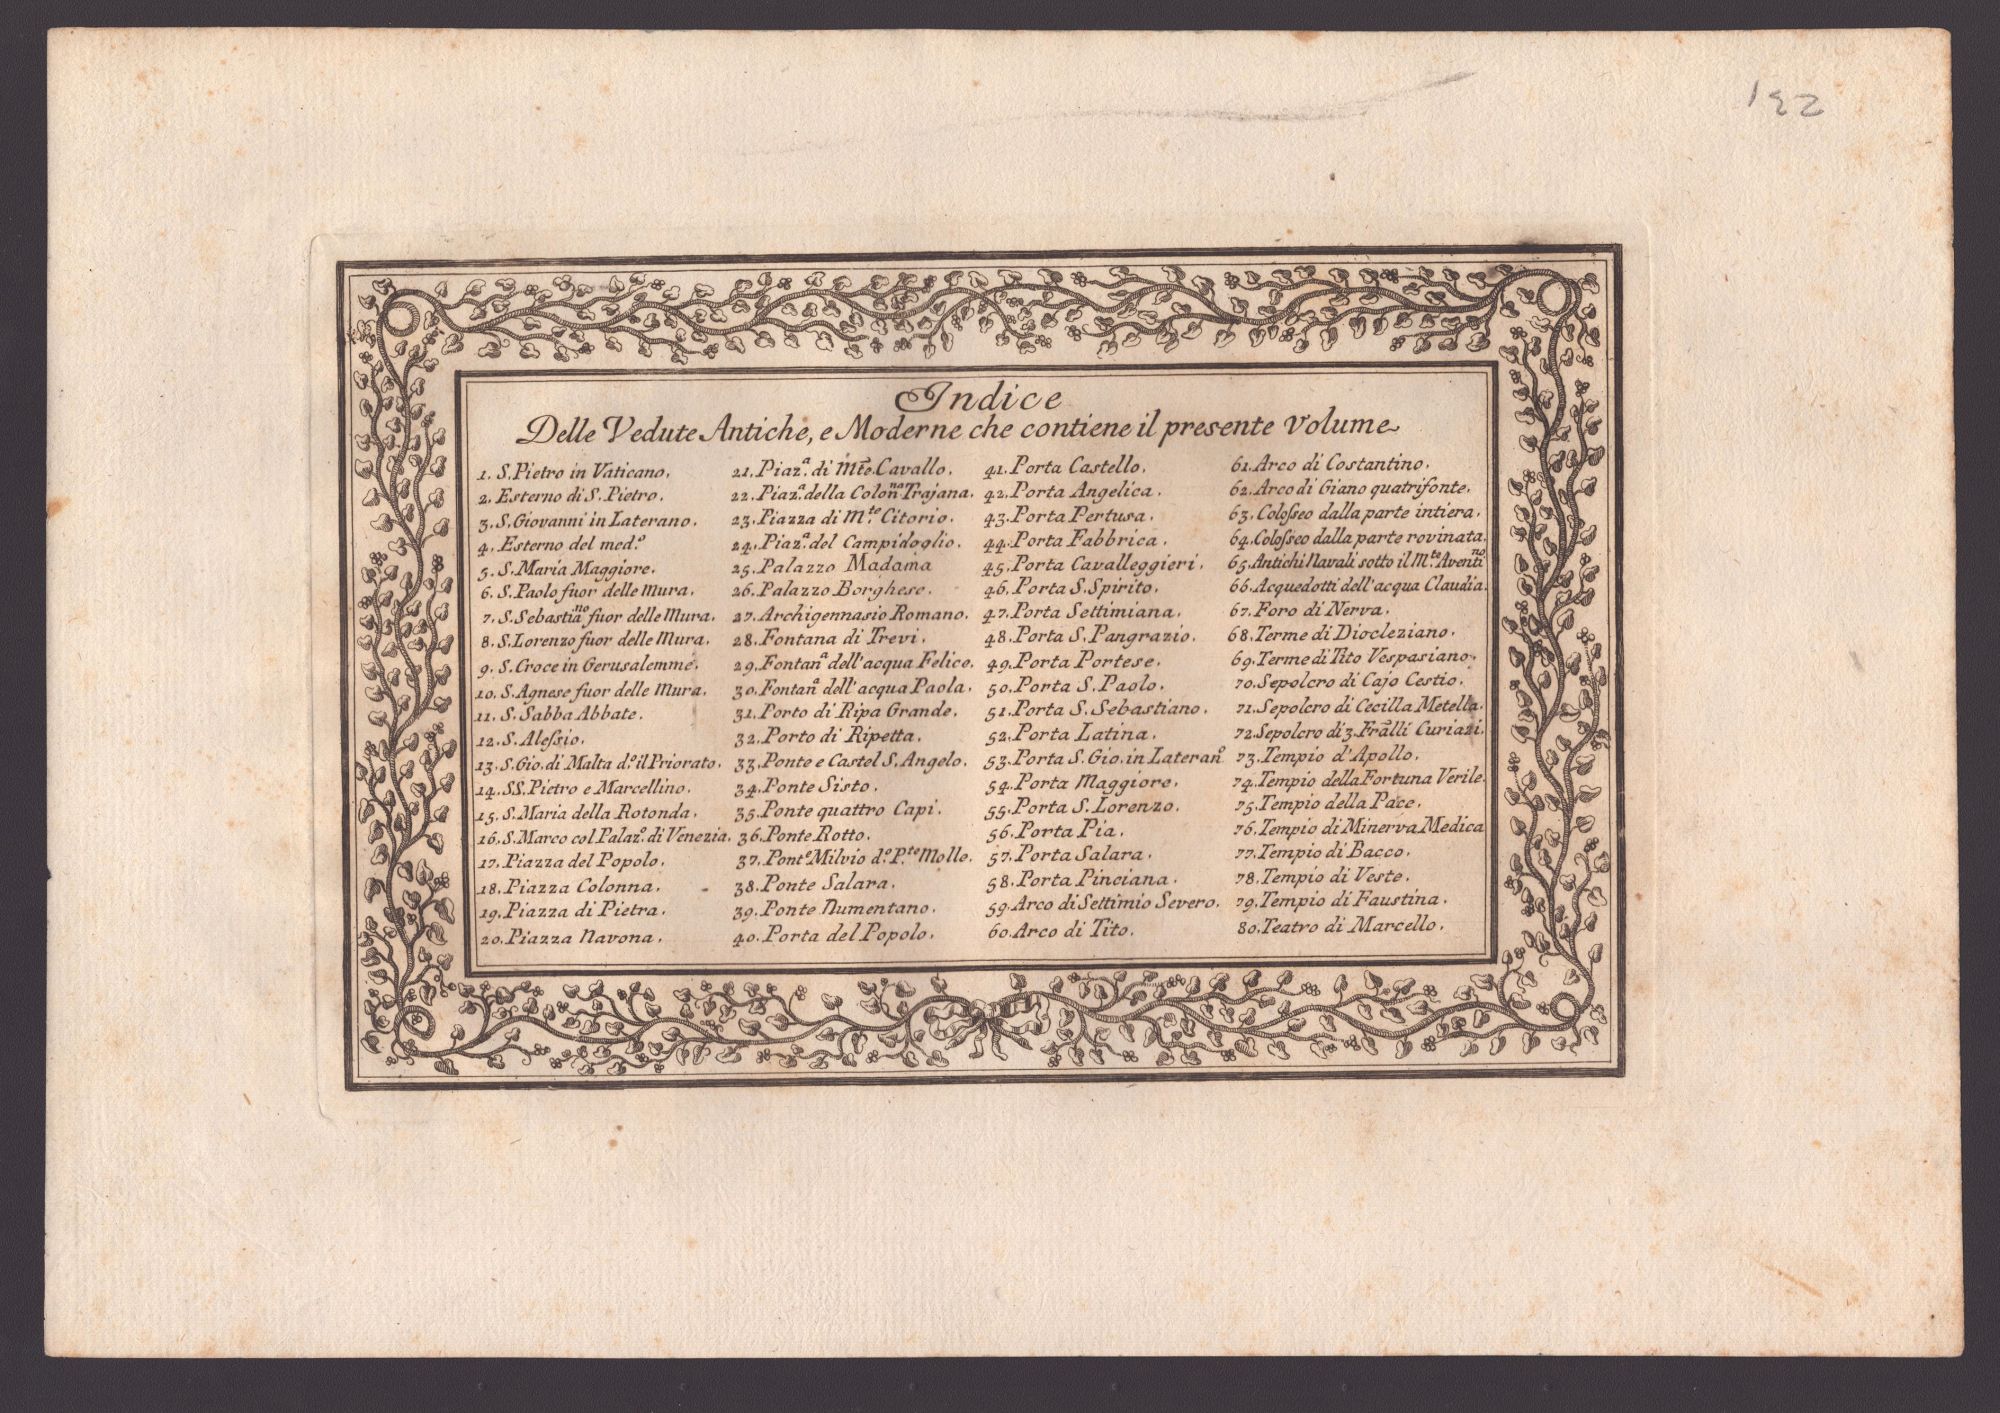 132
Indice
Delle Vedute Antiche, e Moderne che contiene il presente Volume
1. S. Pietro in Vaticano.
2. Esterno di S. Pietro.
3. S. Giovanni in Laterano.
4. Esterno del med.º
5. S. Maria Maggiore.
6. S. Paolo fuor delle Mura.
7. S. Sebastiaⁿº fuor delle Mura.
8. S. Lorenzo fuor delle Mura.
9. S. Croce in Gerusalemme.
10. S. Agnese fuor delle Mura.
11. S. Sabba Abbate.
12. S. Aleſsio.
13. S. Gio. di Malta d.º il Priorato.
14. SS. Pietro e Marcellino.
15. S. Maria della Rotonda.
16. S. Marco col Palaz.º di Venezia.
17. Piazza del Popolo.
18. Piazza Colonna.
19. Piazza di Pietra.
20. Piazza Navona.
21. Piaz.ª di Mte. Cavallo.
22. Piaz.ª della Colon.ⁿª Trajana.
23. Piazza di M.te Citorio.
24. Piaz.ª del Campidoglio.
25. Palazzo Madama
26. Palazzo Borghese.
27. Archigennasio Romano.
28. Fontana di Trevi.
29. Fontanª dell'acqua Felice.
30. Fontanª dell'acqua Paola.
31. Porto di Ripa Grande.
32. Porto di Ripetta.
33. Ponte e Castel S. Angelo.
34. Ponte Sisto.
35. Ponte quattro Capi.
36. Ponte Rotto.
37. Pont.e Milvio d.º P.te Molle.
38. Ponte Salara.
39. Ponte Numentano.
40. Porta del Popolo.
41. Porta Castello.
42. Porta Angelica.
43. Porta Pertusa.
44. Porta Fabbrica.
45. Porta Cavalleggieri.
46. Porta S. Spirito.
47. Porta Settimiana.
48. Porta S. Pangrazio.
49. Porta Portese.
50. Porta S. Paolo.
51. Porta S. Sebastiano.
52. Porta Latina.
53. Porta S. Gio. in Lateranº
54. Porta Maggiore.
55. Porta S. Lorenzo.
56. Porta Pia.
57. Porta Salara.
58. Porta Pinciana.
59. Arco di Settimio Severo.
60. Arco di Tito.
61. Arco di Costantino.
62. Arco di Giano quatrifonte.
63. Coloſseo dalla parte intiera.
64. Coloſseo dalla parte rovinata.
65. Antichi Navali sotto il M.te Aventiⁿº
66. Acquedotti dell'acqua Claudia.
67. Foro di Nerva.
68. Terme di Diocleziano.
69. Terme di Tito Vespasiano.
70. Sepolcro di Cajo Cestio.
71. Sepolcro di Cecilla Metella.
72. Sepolcro di 3. Fralli Curiazi.
73. Tempio d'Apollo.
74. Tempio della Fortuna Verile.
75. Tempio della Pace.
76. Tempio di Minerva Medica
77. Tempio di Bacco.
78. Tempio di Veste.
79. Tempio di Faustina.
80. Teatro di Marcello.